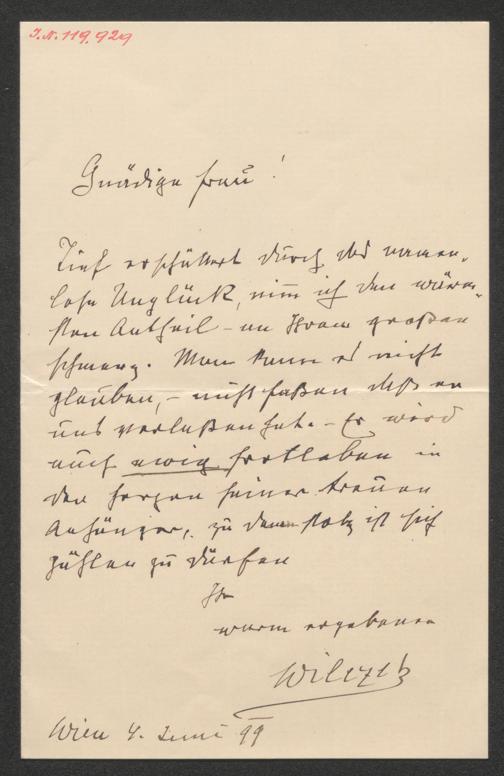 J.N. 119.929
Gnädige Frau!
Tief erschüttert durch das namen-
lose Unglück, nim̅ ich den wärm-
sten Antheil – an Ihrem großen
schmerz. Man kann es nicht
glauben, – nicht faßen daß er
uns verlaßen hat. – Er wird
auch ewig fortleben in
den herzen seiner treuen
Anhänger, zu denen stolz ist sich
zählen zu dürfen
Ihr
warm ergebener
Wilczek
Wien 4. Juni 99